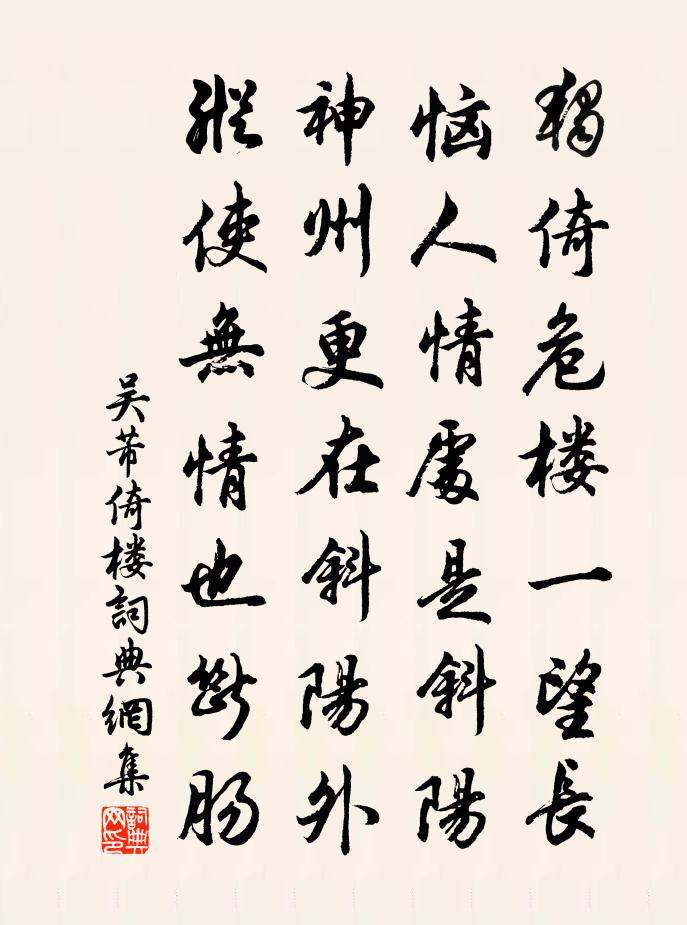 獨倚危楼一望長
惱人情處是斜陽
神州更在斜陽外
縱使無情也斷腸
吴芾倚楼詞典網集
詞典
网印